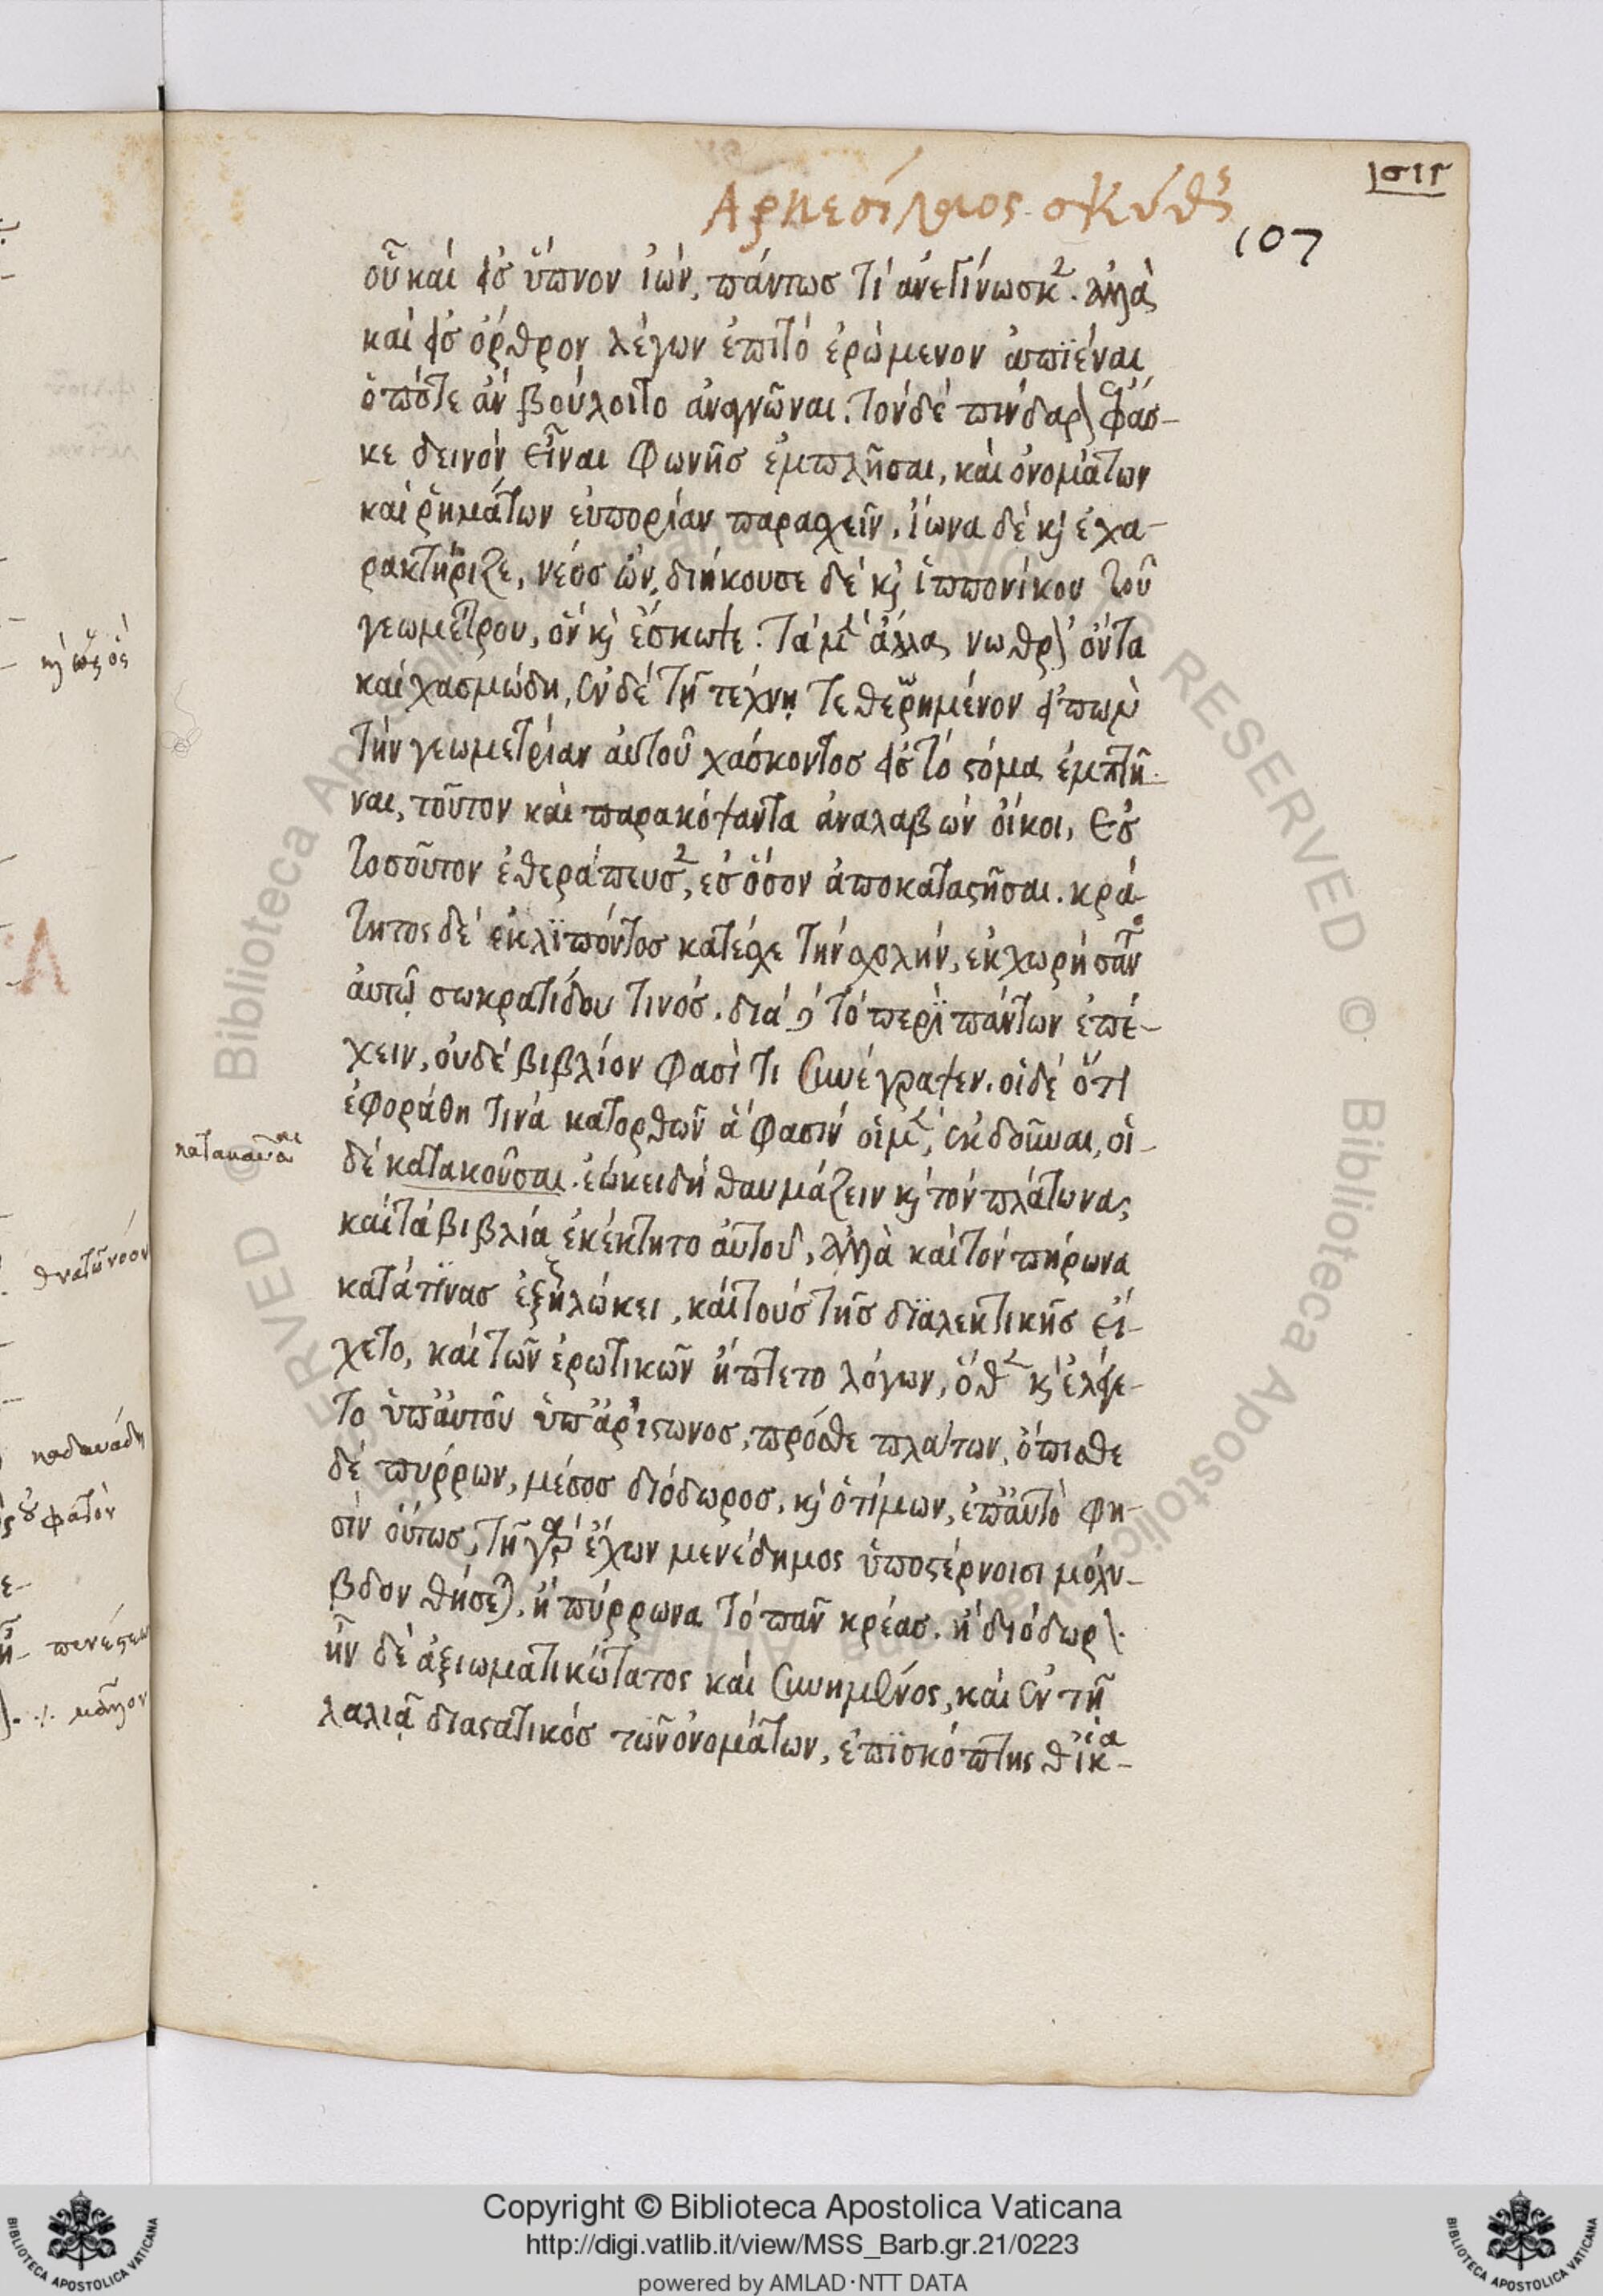 Αρκεσίλαος σκύθς
107
οὗ καὶ εἰσ ὕπνον ἰὼν, πάντωσ τὶ ἀνεγίνωσκε. ἀλλὰ
καὶ εἰσ ὄρθρον λέγων ἐπὶ τὸ ἐρώμενον ἀπϊέναι
ὁπότε ἂν βούλοιτο ἀναγνῶναι. τὸν δὲ πίνδαρ ἔφάσ-
κε δεινὸν εἶναι φωνῆσ ἐμπλῆσαι, καὶ ὀνομάτων
καὶ ῥημάτων εὐπορίαν παρασχεῖν. ἴωνα δὲ κὶ ἐχα-
ρακτήριζε, νέοσ ὤν. διήκουσε δὲ κὶ ἱππονίκου τοῦ
γεωμέτρου, ὃν κὶ ἔσκωψε. τὰ μὲν ἄλλα νωθρ ὄντα
καὶ χασμώδη, ἐν δὲ τῆ τέχνη τεθεωρημένον εἰπὼν
τὴν γεωμετρίαν αὐτοῦ χάσκοντοσ εἰσ τὸ στόμα ἐμπτῆ-
ναι, τοῦτον καὶ παρακόψαντα ἀναλαβὼν οἴκοι, ἐσ
τοσοῦτον ἐθεράπευσε, ἐσ ὅσον ἀποκαταστῆσαι. κρά-
τητος δὲ ἐκλϊπόντοσ κατέσχε τὴν σχολὴν, ἐκχωρήσαντος
αὐτῶ σωκρατίδου τινόσ. διὰ δὲ τὸ περὶ πάντων ἐπέ-
χειν, οὐδὲ βιβλίον φασί τι συνέγραψεν. οἱ δὲ ὅτι
ἐφοράθη τινὰ κατορθῶν ἅ φασιν οἱ μὲν ἐκδοῦναι, οἱ
κατακαῦσαι
δὲ κατακοῦσαι. ἐώκει δὴ θαυμάζειν κὶ τὸν πλάτωνα,
καὶ τὰ βιβλία ἐκέκτητο αὐτοῦ, ἀλλὰ καὶ τὸν πήρωνα
κατά τϊνασ ἐξηλώκει, καὶ τοὺσ τῆσ δϊαλεκτικῆσ εἴ-
χετο, καὶ τῶν ἐρωτικῶν ἥπτετο λόγων, ὅθεν κὶ ἐλέγε-
το ὑπ' αὐτοῦ ὑπ' ἀρίστωνοσ, πρόσθε πλάτων, ὄπισθε
δὲ πυρρων, μέσοσ διόδωροσ, κὶ ὁ τίμων, ἐπ' αὐτὸ φη-
σὶν οὕτωσ, τῆ γὰρ ἔχων μενέδημος ὑπὸ στέρνοισι μόλυ-
βδον θήσεται, ἢ πύρρωνα τὸ πᾶν κρέασ. ἢ διόδωρ.
ἦν δὲ ἀξιωματικώτατος καὶ συνημένος, καὶ ἐν τῆ
λαλιᾶ διαστατικόσ τῶν ὀνομάτων, ἐπϊσκόπτης θ' ἱκα-
Copyright © Biblioteca Apostolica Vaticana
http://digi.vatlib.it/view/MSS_Barb.gr.21/0223
powered by AMLAD·NTT DATA